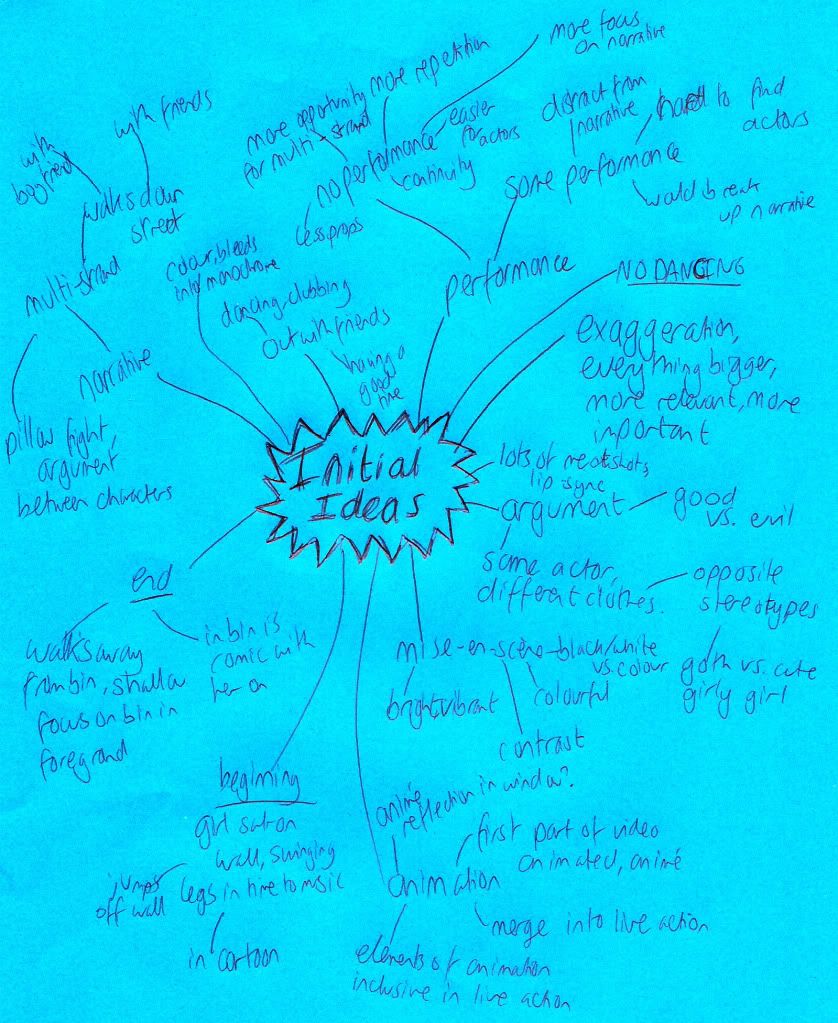 Initial
Ideas
performance
no performance
more opportunity
for multi-strand
more repetition
more focus
on narrative
easier
for actors
continuity
less props
some performance
distract from
narrative
hard to find
actors
would break
up narrative
NO DANCING
exaggeration,
everything bigger,
more relevant, more
important
lots of
lip sync
argument
good
vs. evil
same actor,
different clothes.
opposite
stereotypes
goth vs. cute
girly girl
mise-en-scene
black/white
vs. colour
bright, vibrant
colourful
contrast
animation
anime
reflection in window?
first part of video
animated, animé
merge into live action
elements of animation
inclusive in live action
beginning
girl sat on
wall, swinging
legs in time to music
jumps
off wall
in cartoon
end
walks away
from bin, shallow
focus on bin in
foregrand
in bin is
comic with
her on
narrative
multi-strand
walks down
street
with
boyfriend
with friends
pillow fight,
argument
between characters
colour, bleeds
into monochrome
out with friends
dancing, clubbing
having a
good
time